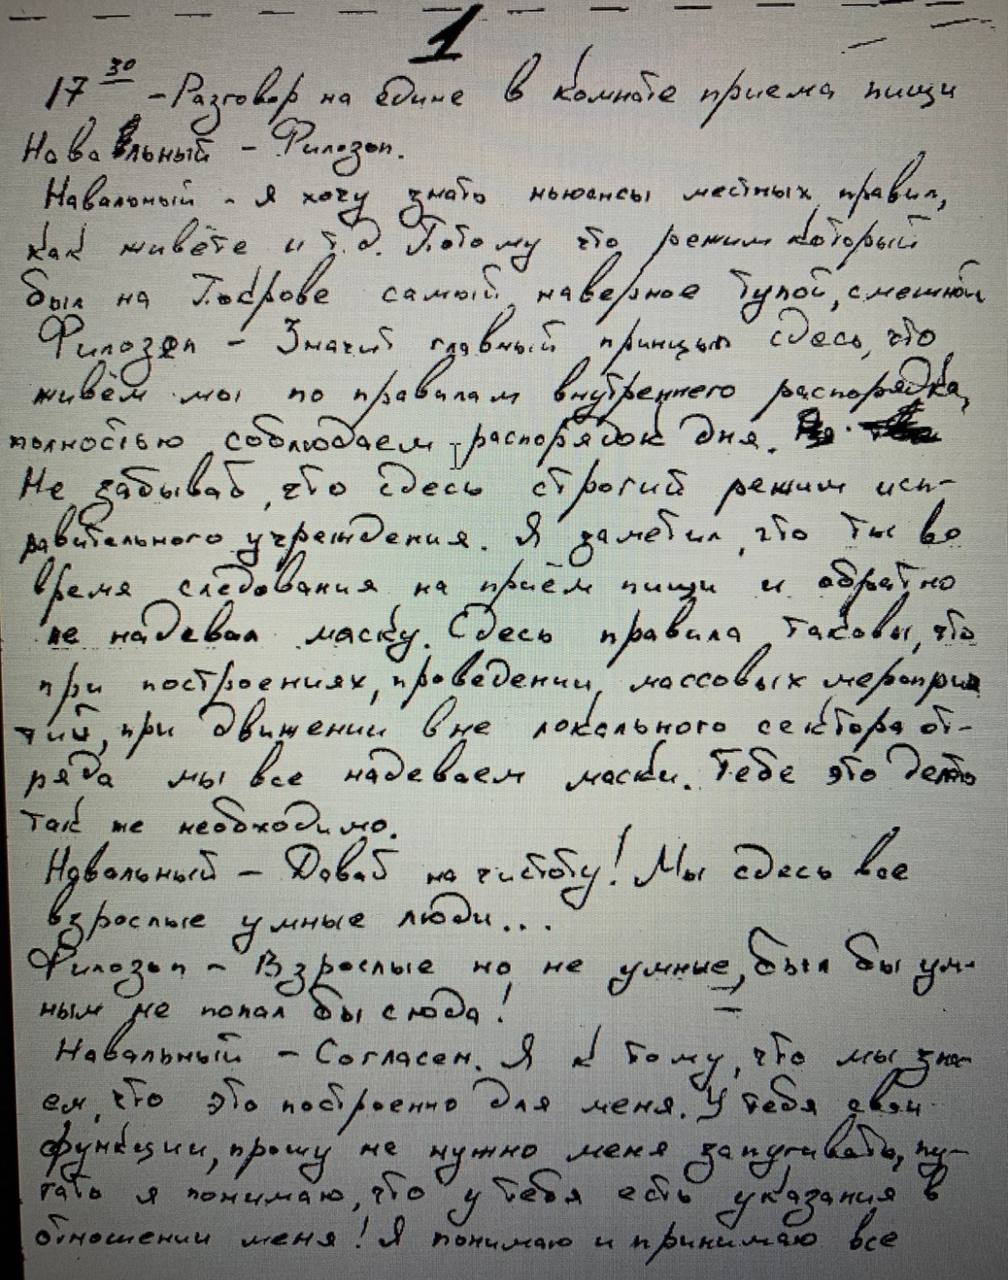 1
17 30 - Разговор на едине в комнате приема пищи
Навальный - Филозоп.
Навальный - Я хочу знать ньюансы местных правил,
как живёте и т.д. Потому что режим который
был на Покрове самый наверное тупой, смешной
Филозоп - Значит главный принцып сдесь, что
живём мы по правилам внутреннего распорядка,
полностью соблюдаем распорядок дня.
Не забывай, что сдесь строгий режим исп-
равительного учреждения. Я заметил, что ты во
время следования на приём пищи и обратно
не надевал маску. Сдесь правила таковы, что
при построениях, проведении, массовых мероприя
тий, при движении вне локального сектора от-
ряда мы все надеваем маски. Тебе это делать
так же необходимо.
Навальный - Давай на чистоту! Мы сдесь все
взрослые умные люди...
Филозоп - Взрослые но не умные, был бы ум-
ным не попал бы сюда!
Навальный - Согласен. Я к тому, что мы зна-
ем, что это построенно для меня. У тебя свои
функции, прошу не нужно меня запугивать, пу-
гать я понимаю, что у тебя есть указания в
отношении меня! Я понимаю и принимаю все